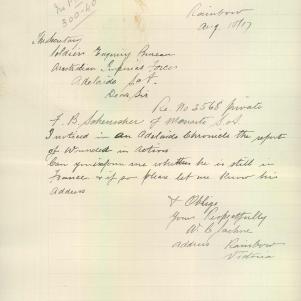 300.60
Rainbow
Aug 10/17
The Secretary
Soldiers Enquiry Bureau
Australian Imperial Force
Adelaide S.A.
Dear Sir
Re. No 2568 Private
F. B. of Monarto S.A.
I noticed in an Adelaide Chronicle the report
of Wounded in Action
Can you inform me whether he is still in
France & if so please let me know his
Address
& Oblige
Yours Respectfully
W. C.
Address Rainbow
Victoria